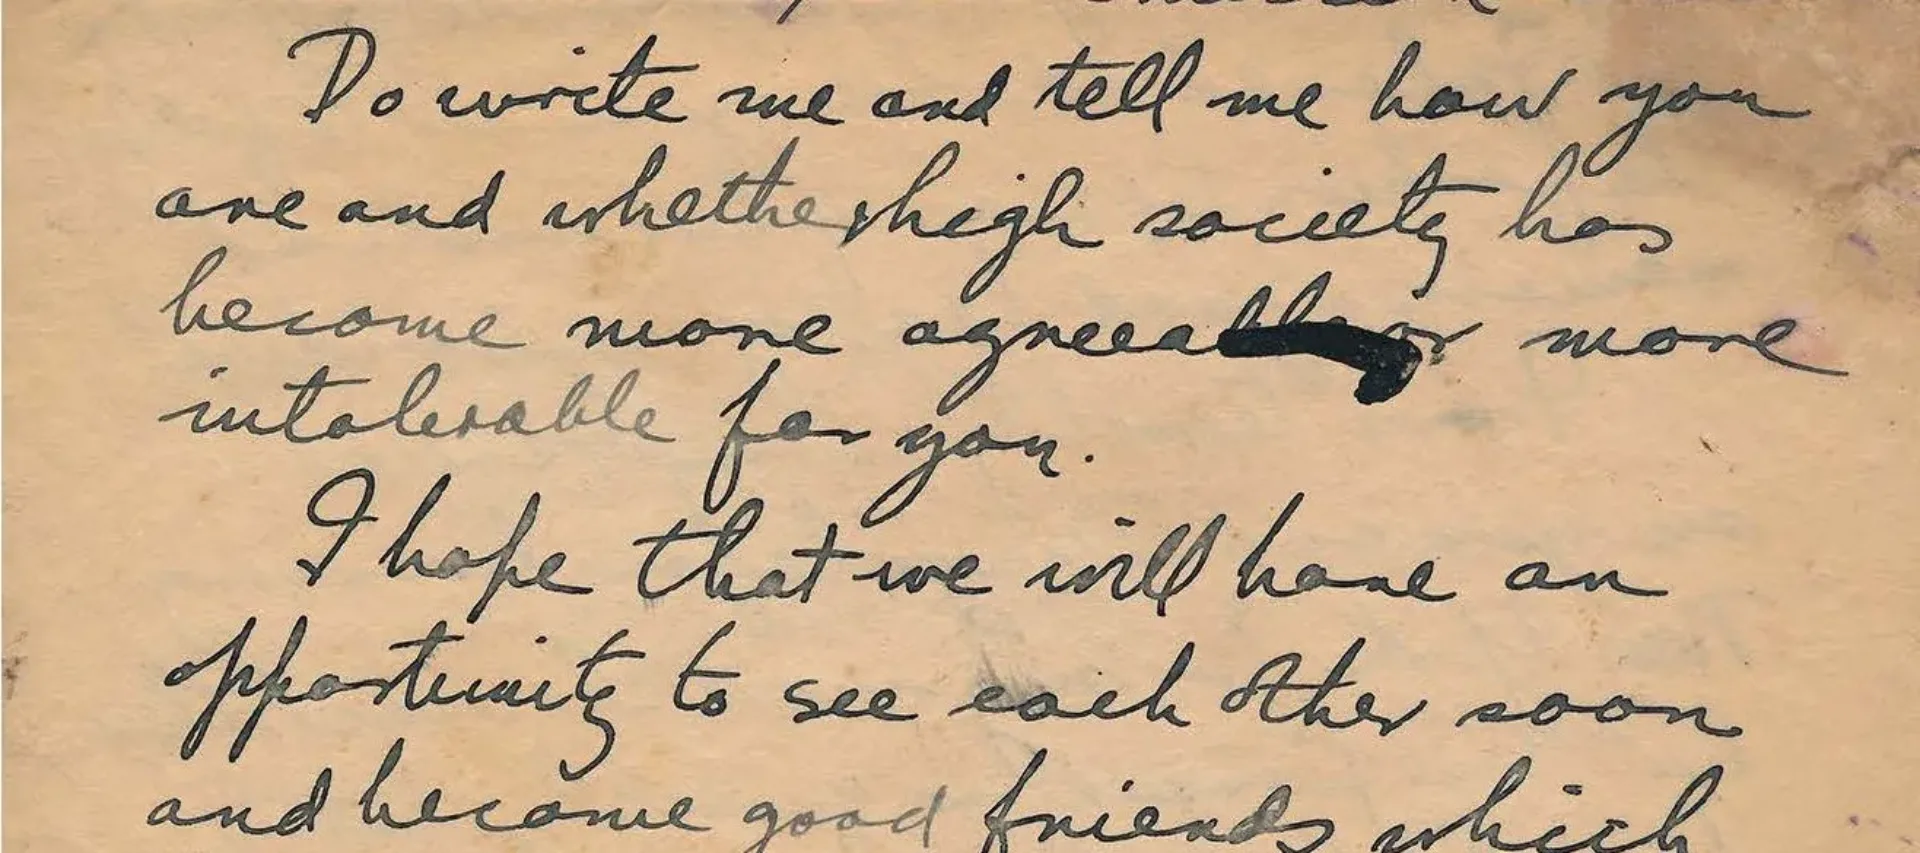 Do write me and tell me how you
are and whether high society has
become more agreeable or more
intolerable for you.
I hope that we will have an
opportunity to see each other soon
and become good friends which